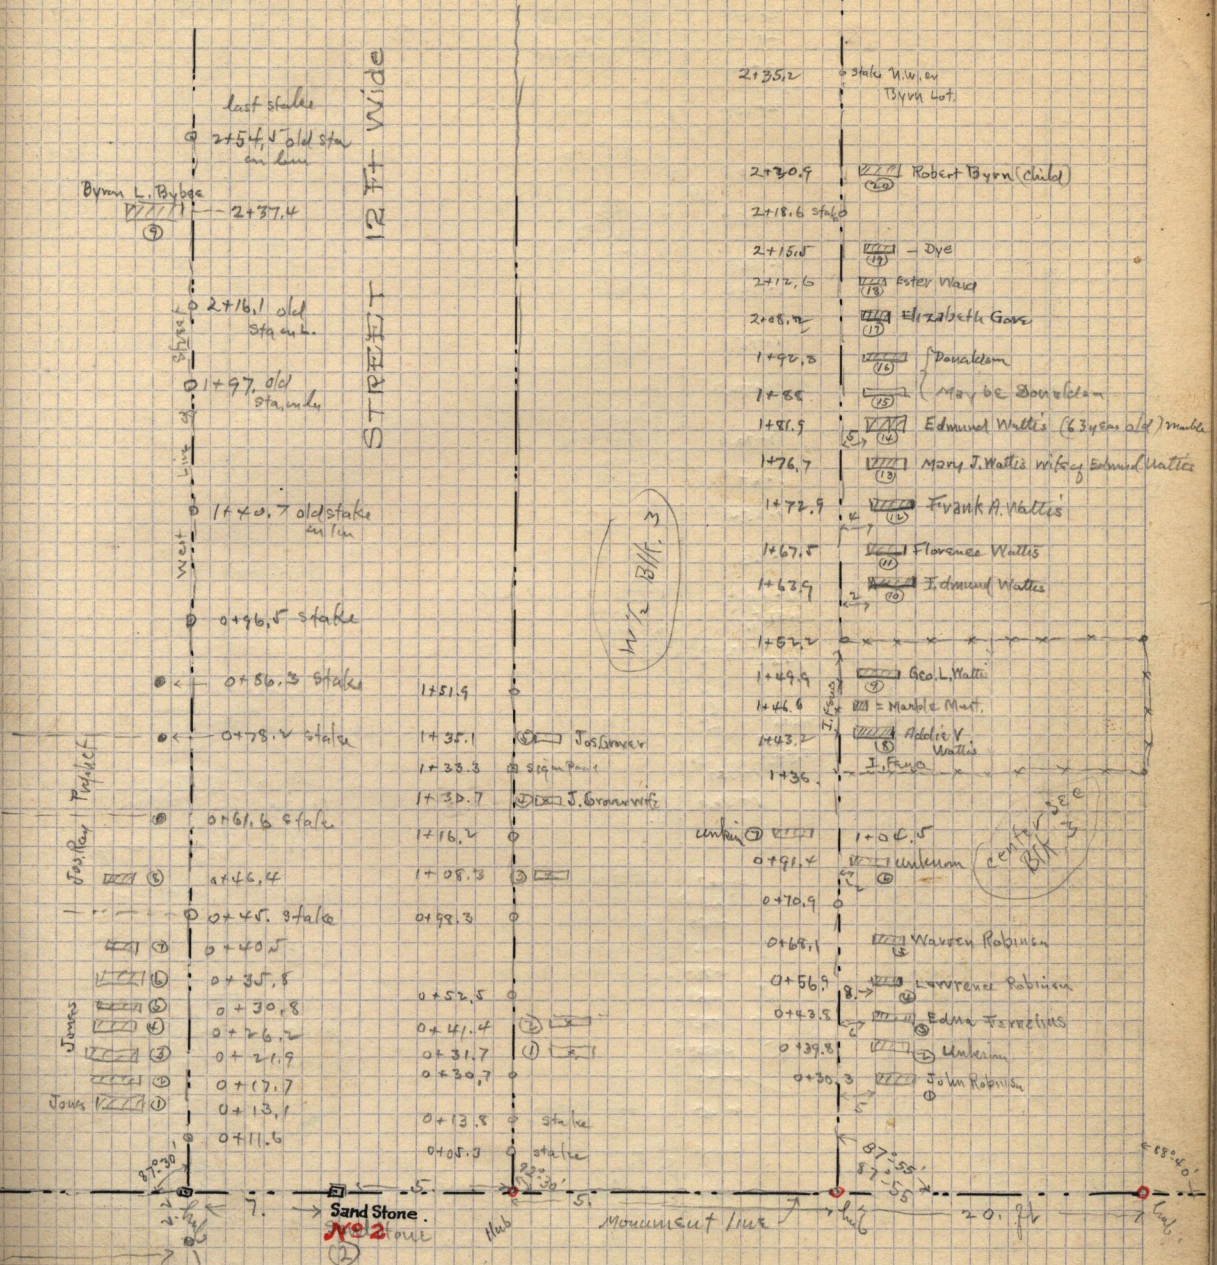 last stake
2+54.5 old sta
on line
Byron L. Bybee
2+37.4
9
2+16.1 old
Sta on L.
1+97. old
Sta. on
1+40.7 old stake
on lin
0+96.5 stake
0+86.3 stake
0+78.2 stake
0+61.6 stake
8
0+46.4
0+45. stake
7
0+40.5
6
0+35.8
5
0+30.8
4
0+26.2
3
0+21.9
2
0+17.7
Jones
1
0+13.1
0+11.6
Jones
Jos. Ray
West Line of Street
STREET 12 Ft Wide
87°30'
7.
Sand Stone
No 2
2
5
1+51.9
1+35.1
5
Jos. Grover
1+33.3
1+30.7
4
J. Grover wife
1+16.2
1+08.3
3
0+98.3
0+52.5
0+41.4
2
0+31.7
1
0+30.7
0+13.8 stake
0+05.3 stake
Hub
5.
Monument Line
W 1/2 Blk. 3
2+35.2
stake N.W. cor
Byrn Lot.
2+30.9
20
Robert Byrn (child)
2+18.6 stake
2+15.5
19
- Dye
2+12.6
18
Ester Ward
2+08.2
17
Elizabeth Gove
1+92.3
16
Donaldson
1+88
15
May be Donaldson
1+81.9
5
14
Edmund Wattis (63 years old) marble
1+76.7
13
Mary J. Wattis wife of Edmund Wattis
1+72.9
12
Frank A. Wattis
4
1+67.5
11
Florence Wattis
1+63.9
10
Edmund Wattis
2
1+52.2
1+49.9
9
Geo. L. Wattis
1+46.6
= Marble Mont.
1+43.2
8
Addie V.
Wattis
I. Fence
I. Fence
1+36.
center
Blk. 3
7
1+04.5
0+91.4
6
unknown
2
0+70.9
0+68.1
5
Warren Robinson
0+56.9
8.
4
Lawrence Robinson
0+43.8
6
3
Edna Fernelius
0+39.8
2
Unknown
0+30.3
John Robinson
1
5
87°55'
87°55'
88°40'
hub
20. ft
hub